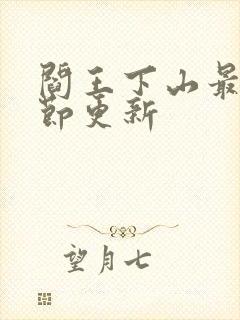 閻王下山最
節更新
望月七